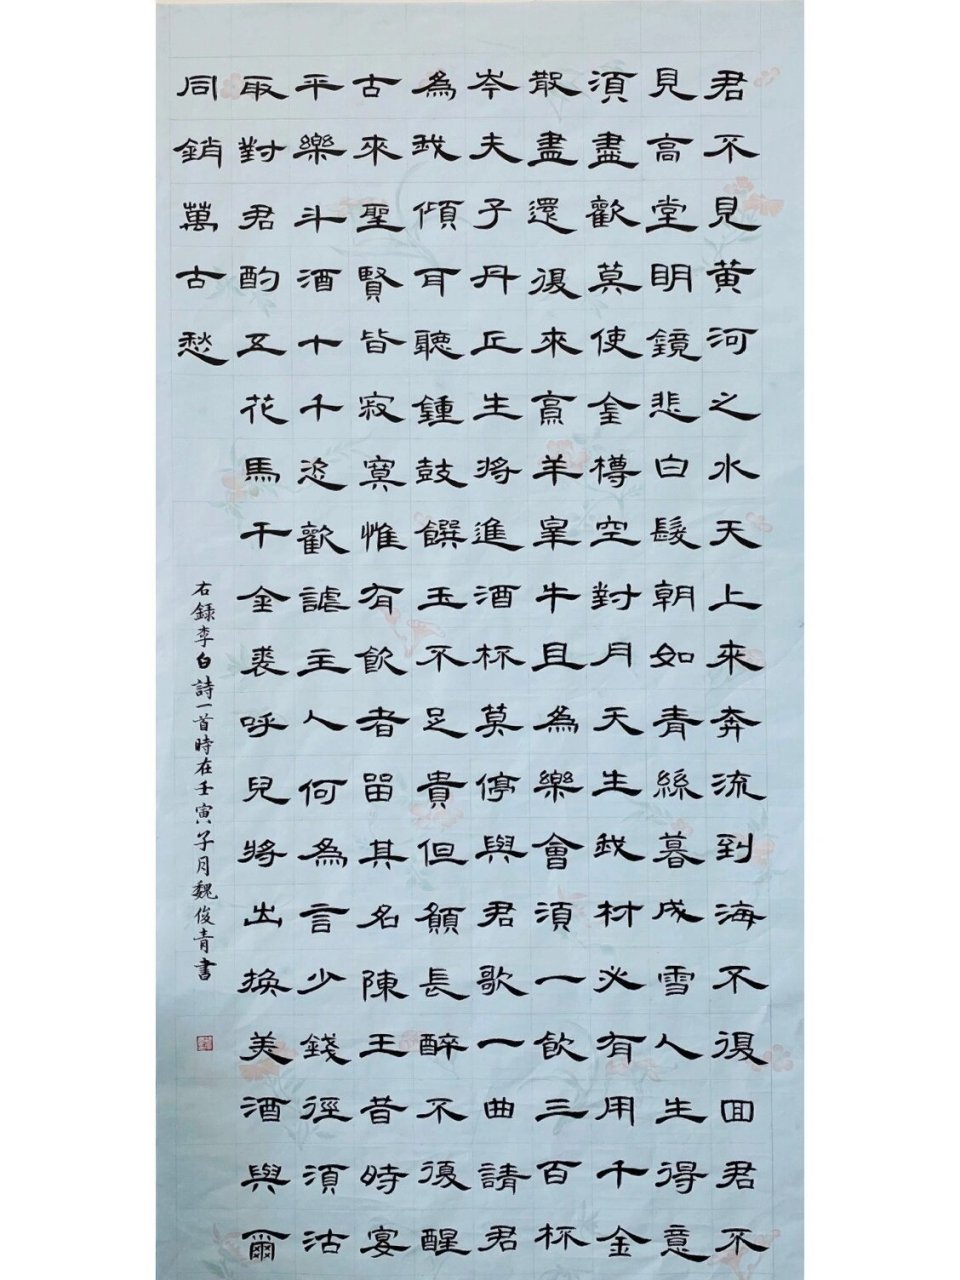 君不見黃河之水天上來奔流到海不復回君不
見高堂明鏡悲白髮朝如青絲暮成雪人生得意
須盡歡莫使金樽空對月天生我材必有用千金
散盡還復來烹羊宰牛且為樂會須一飲三百杯
岑夫子丹丘生將進酒杯莫停與君歌一曲請君
為我傾耳聽鍾鼓饌玉不足貴但願長醉不復醒
古來聖賢皆寂寞惟有飲者留其名陳王昔時宴
平樂斗酒十千恣歡謔主人何為言少錢徑須沽
取對君酌五花馬千金裘呼兒將出換美酒與爾
同銷萬古愁
右錄李白詩一首時在壬寅子月魏俊青書